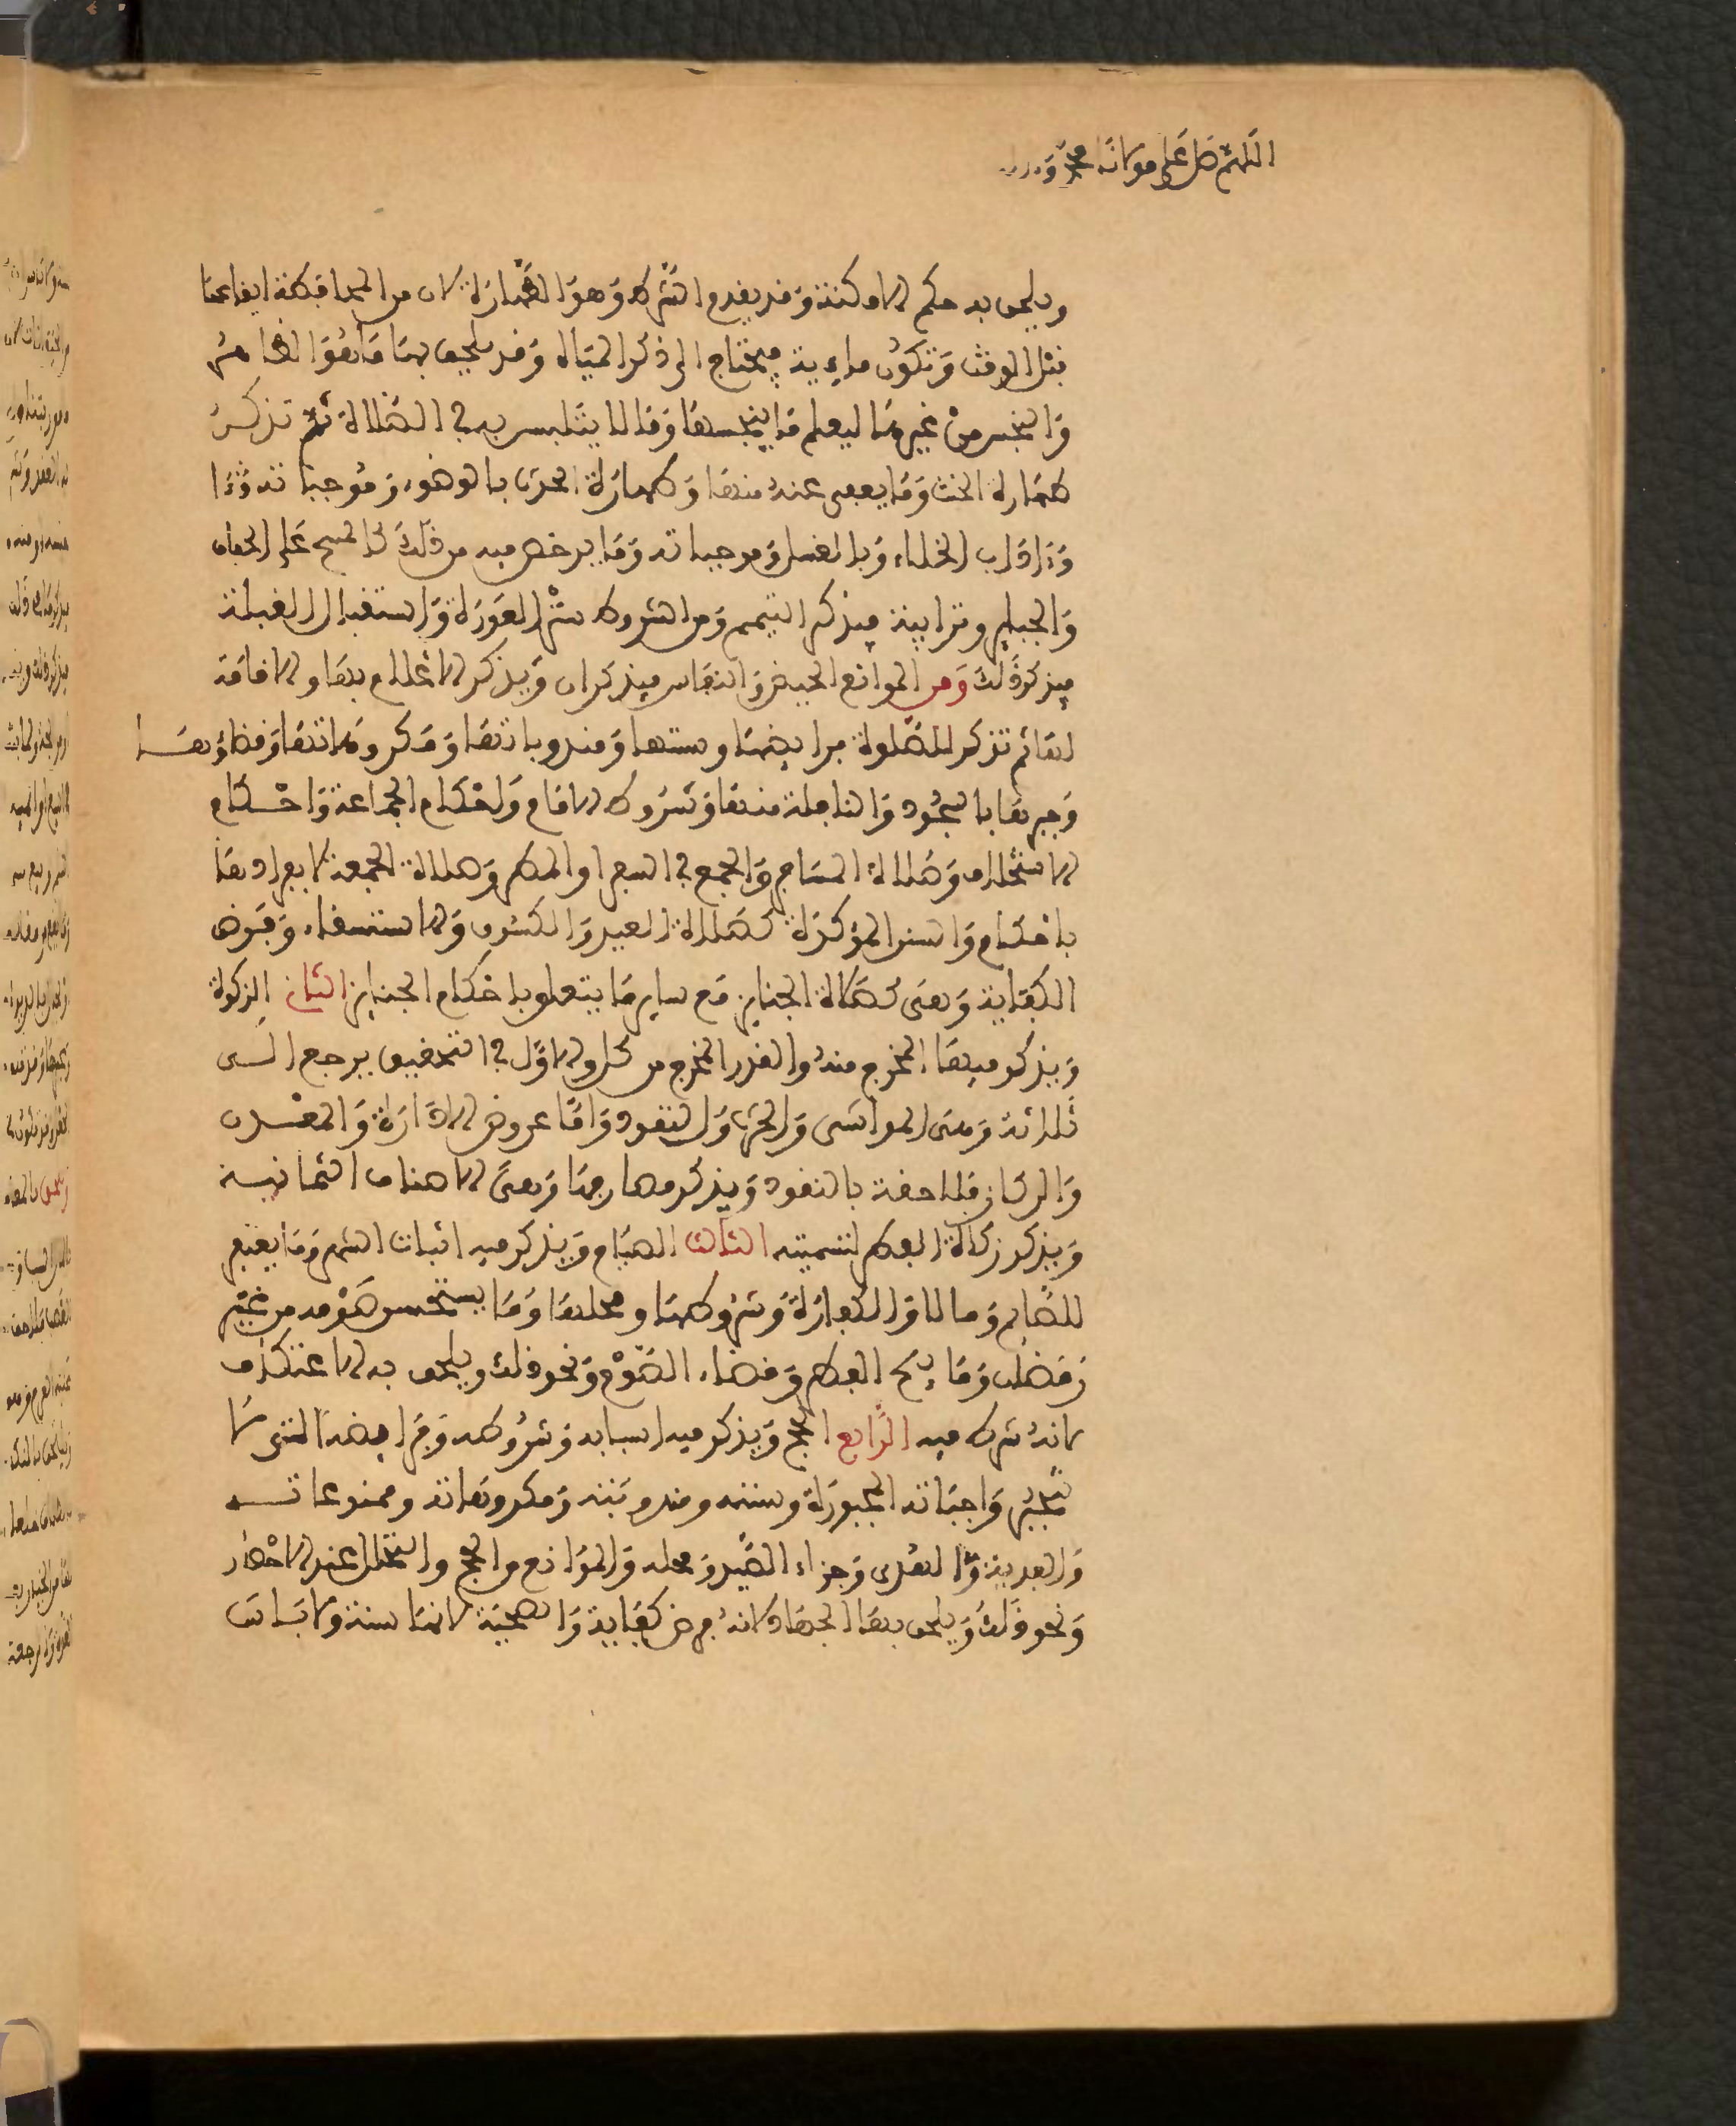 اللهم صل على مولانا محمد و
ويلحق به حكم الامكنة وقد يقدم الشرط وهو الطهارة لان من المحافظة ايقاعها
قبل الوقت وتكون مائية فيحتاج الى ذكر المياه وقد يلحق بها ما هو الطاهر
والنجس من غيرها ليعلم ما ينجسها وما لا يتلبس به في الصلاة ثم تذكر
طهارة الخبث وما يعفى عنه منها وطهارة الحدث بالوضوء وموجباته وءا
وءاداب الخلاء وبالغسل وموجباته وما يرخص فيه من ذلك كالمسح على الخفاف
والجباير وترابية فيذكر التيمم ومن الشروط ستر العورة واستقبال القبلة
فيذكر ذلك ومن الموانع الحيض والنفاس فيذكران ويذكر الاعلام بها والاقامة
لها ثم تذكر للصلوة فرايضها وسننها ومندوباتها ومكروهاتها وقضاؤها
وجبرها بالسجود والنافلة منها وشروط الامام واحكام الجماعة واحكام
الاستخلاف وصلاة المسافر والجمع في السفر او المطر وصلاة الجمعة لانفرادها
باحكام والسنن المؤكدة كصلاة العيد والكسوف والاستسقاء وفروض
الكفاية وهى كصلاة الجنايز مع ساير ما يتعلق باحكام الجنايز الثانى الزكوة
ويذكر فيها المخرج منه والقدر المخرج من كل والاول في التحقيق يرجع الى
ثلاثة وهى المواشى والحرث والنقود واما عروض الادارة والمعدن
والركاز فلاحقة بالنقود ويذكر مصارفها وهى الاصناف الثمانية
ويذكر زكاة الفطر لتسميته الثالث الصيام ويذكر فيه اثبات الشهر وما يقع
للصايم وما لا والكفارة وشروطها ومحلها وما يستحسن صومه من غير
رمضان وما يبيح الفطر وقضاء الصوم ونحو ذلك ويلحق به الاعتكاف
لانه شرط فيه الرابع الحج ويذكر فيه اسبابه وشروطه وفرايضه التى لا
تجبر وواجباته المجبورة وسننه ومندوبته ومكروهاته وممنوعاته
والفدية والهدى وجزاء الصيد ومحله والموانع من الحج والتحلل عند الاحصار
ونحو ذلك ويلحق بها الجهاد لانه فرض كفاية والضحية لانها سنة ولا باس